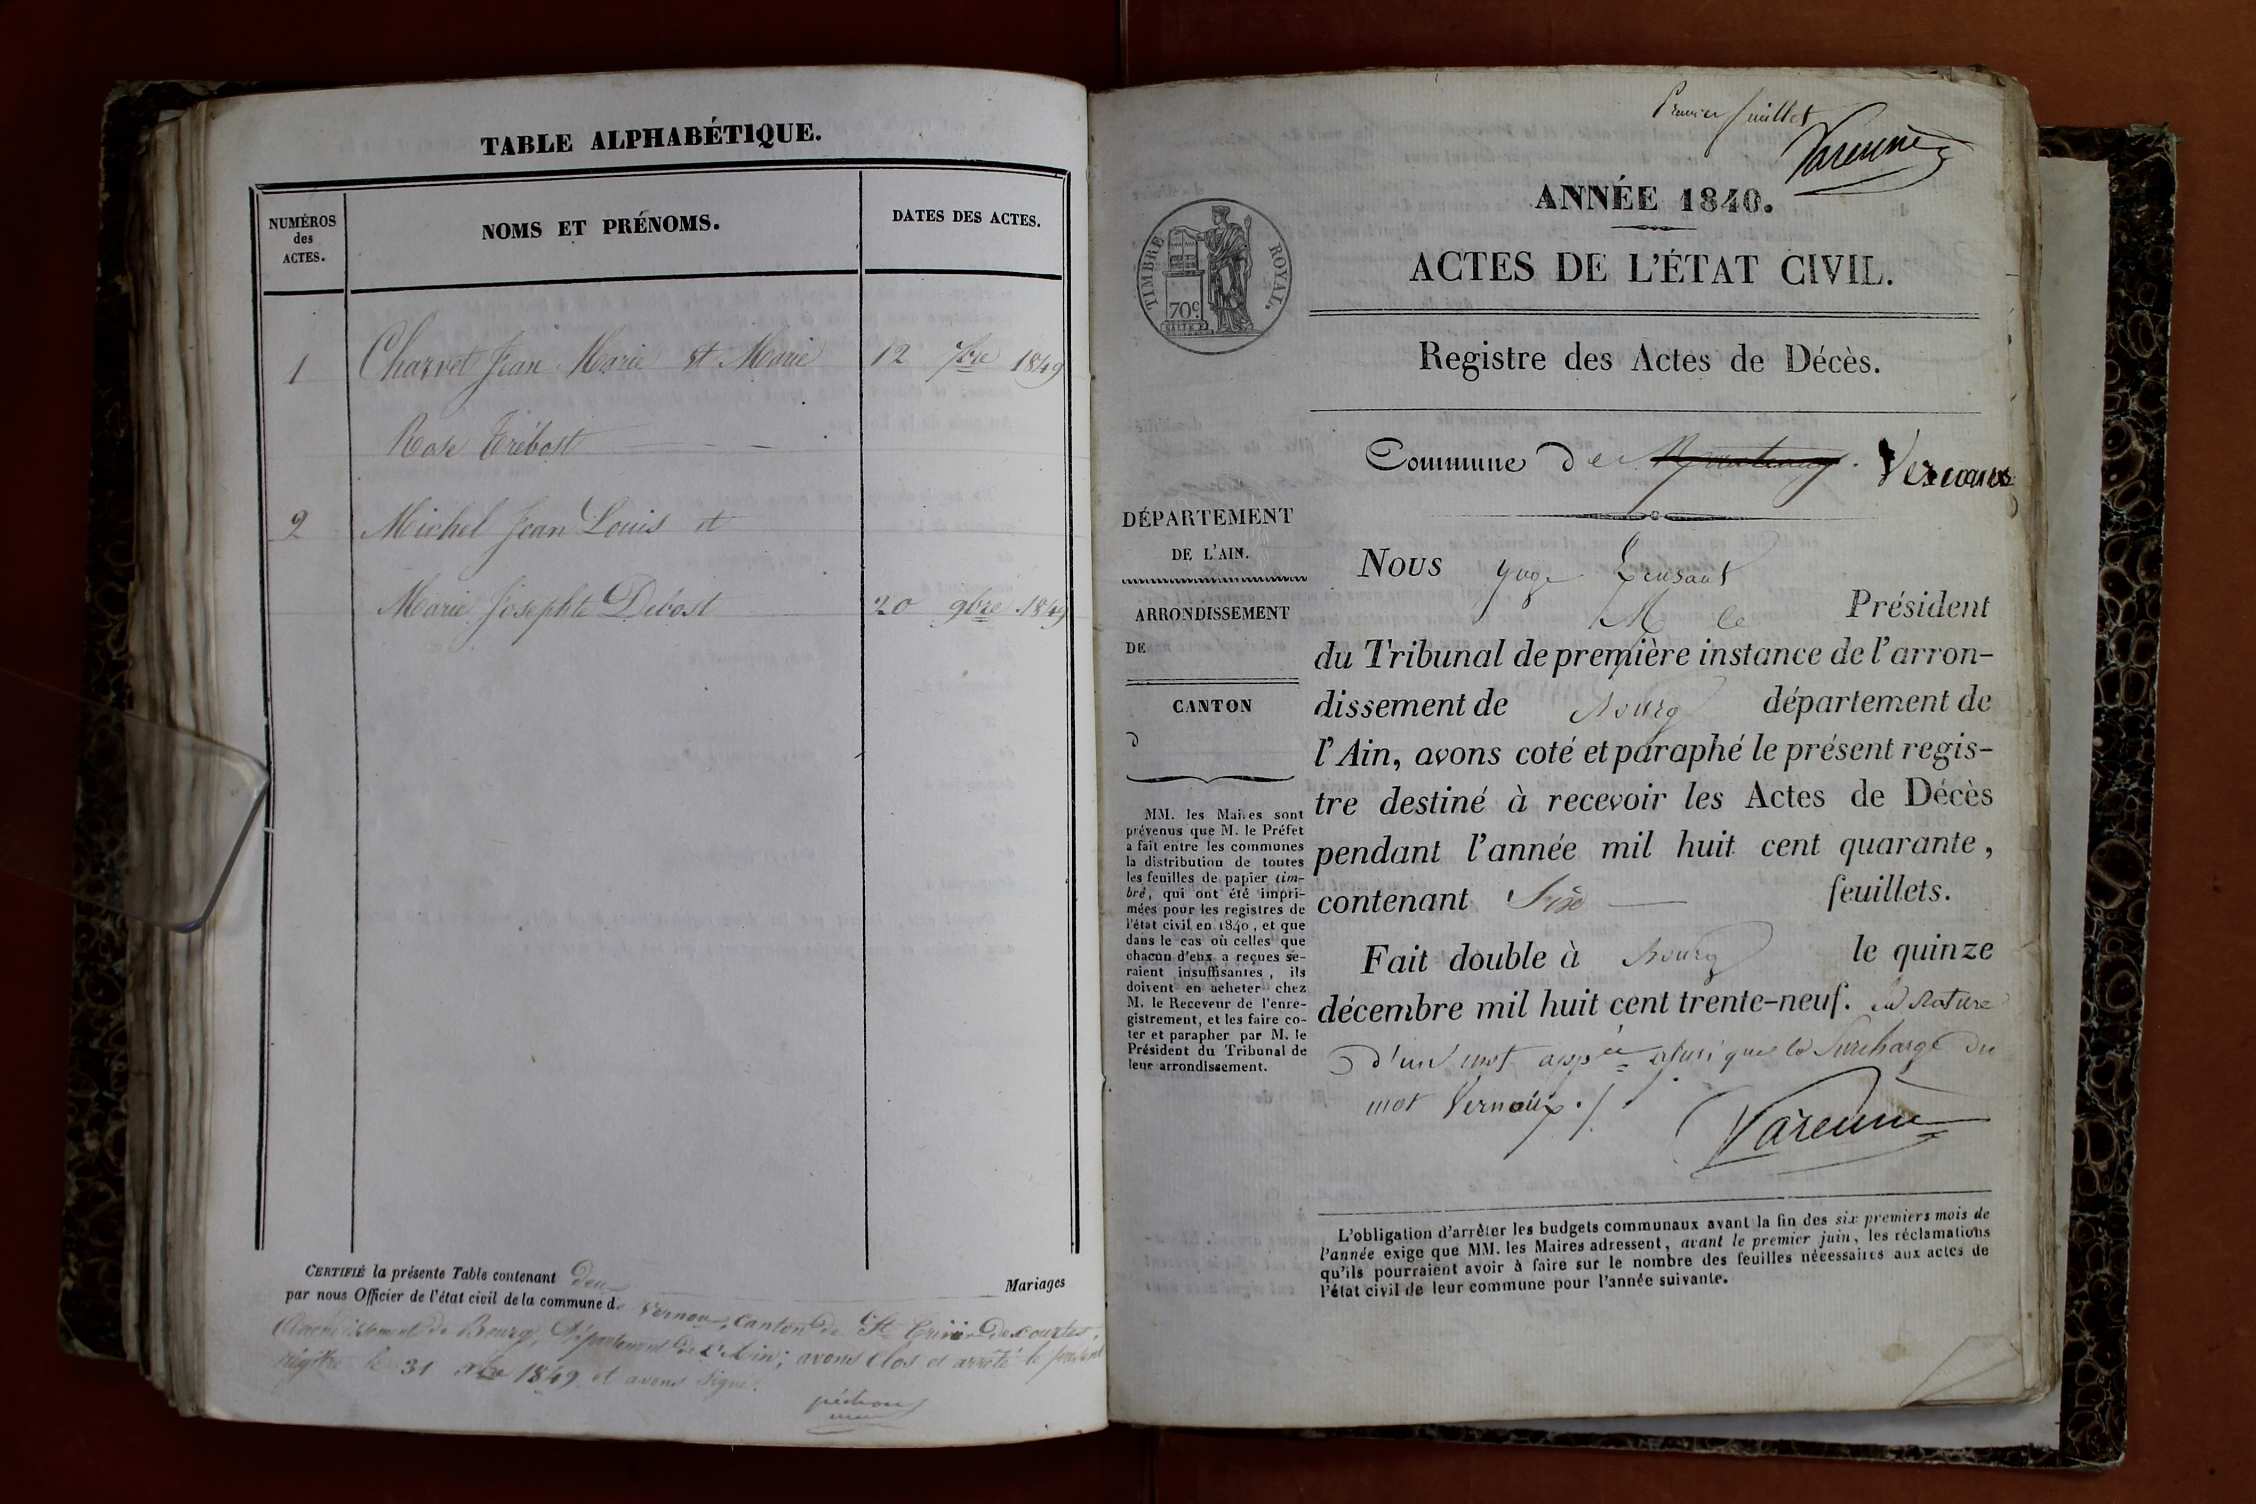 TABLE ALPHABÉTIQUE.
NUMÉROS
des
ACTES.
NOMS ET PRÉNOMS.
DATES DES ACTES.
1 Charvet Jean Marie et Marie 12 7bre 1849
Rose Trébost
2 Michel Jean Louis et
Marie Josephte Debost 20 9bre 1849
CERTIFIÉ la présente Table contenant deux Mariages
par nous Officier de l'état civil de la commune de Vernoux, canton de St Trivier de Courtes,
arrondissement de Bourg, département de l'Ain; avons clos et arrêté le présent
régitre le 31 xbre 1849 et avons signé.
Premier feuillet
Varenne
ANNÉE 1840.
ACTES DE L'ÉTAT CIVIL.
TIMBRE ROYAL.
70c
Registre des Actes de Décès.
Commune de Vernoux
DÉPARTEMENT
DE L'AIN.
ARRONDISSEMENT
DE
CANTON
D
MM. les Maires sont
prévenus que M. le Préfet
a fait entre les communes
la distribution de toutes
les feuilles de papier tim-
bré, qui ont été impri-
mées pour les registres de
l'état civil en 1840, et que
dans le cas où celles que
chacun d'eux a reçues se-
raient insuffisantes, ils
doivent en acheter chez
M. le Receveur de l'enre-
gistrement, et les faire co-
ter et parapher par M. le
Président du Tribunal de
leur arrondissement.
Nous juge
M le Président
du Tribunal de première instance de l'arron-
dissement de Bourg département de
l'Ain, avons coté et paraphé le présent regis-
tre destiné à recevoir les Actes de Décès
pendant l'année mil huit cent quarante,
contenant Six feuillets.
Fait double à Bourg le quinze
décembre mil huit cent trente-neuf. La Rature
d'un mot appée ainsi que la surcharge du
mot Vernoux ./.
Varenne
L'obligation d'arrêter les budgets communaux avant la fin des six premiers mois de
l'année exige que MM. les Maires adressent, avant le premier juin, les réclamations
qu'ils pourraient avoir à faire sur le nombre des feuilles nécessaires aux actes de
l'état civil de leur commune pour l'année suivante.